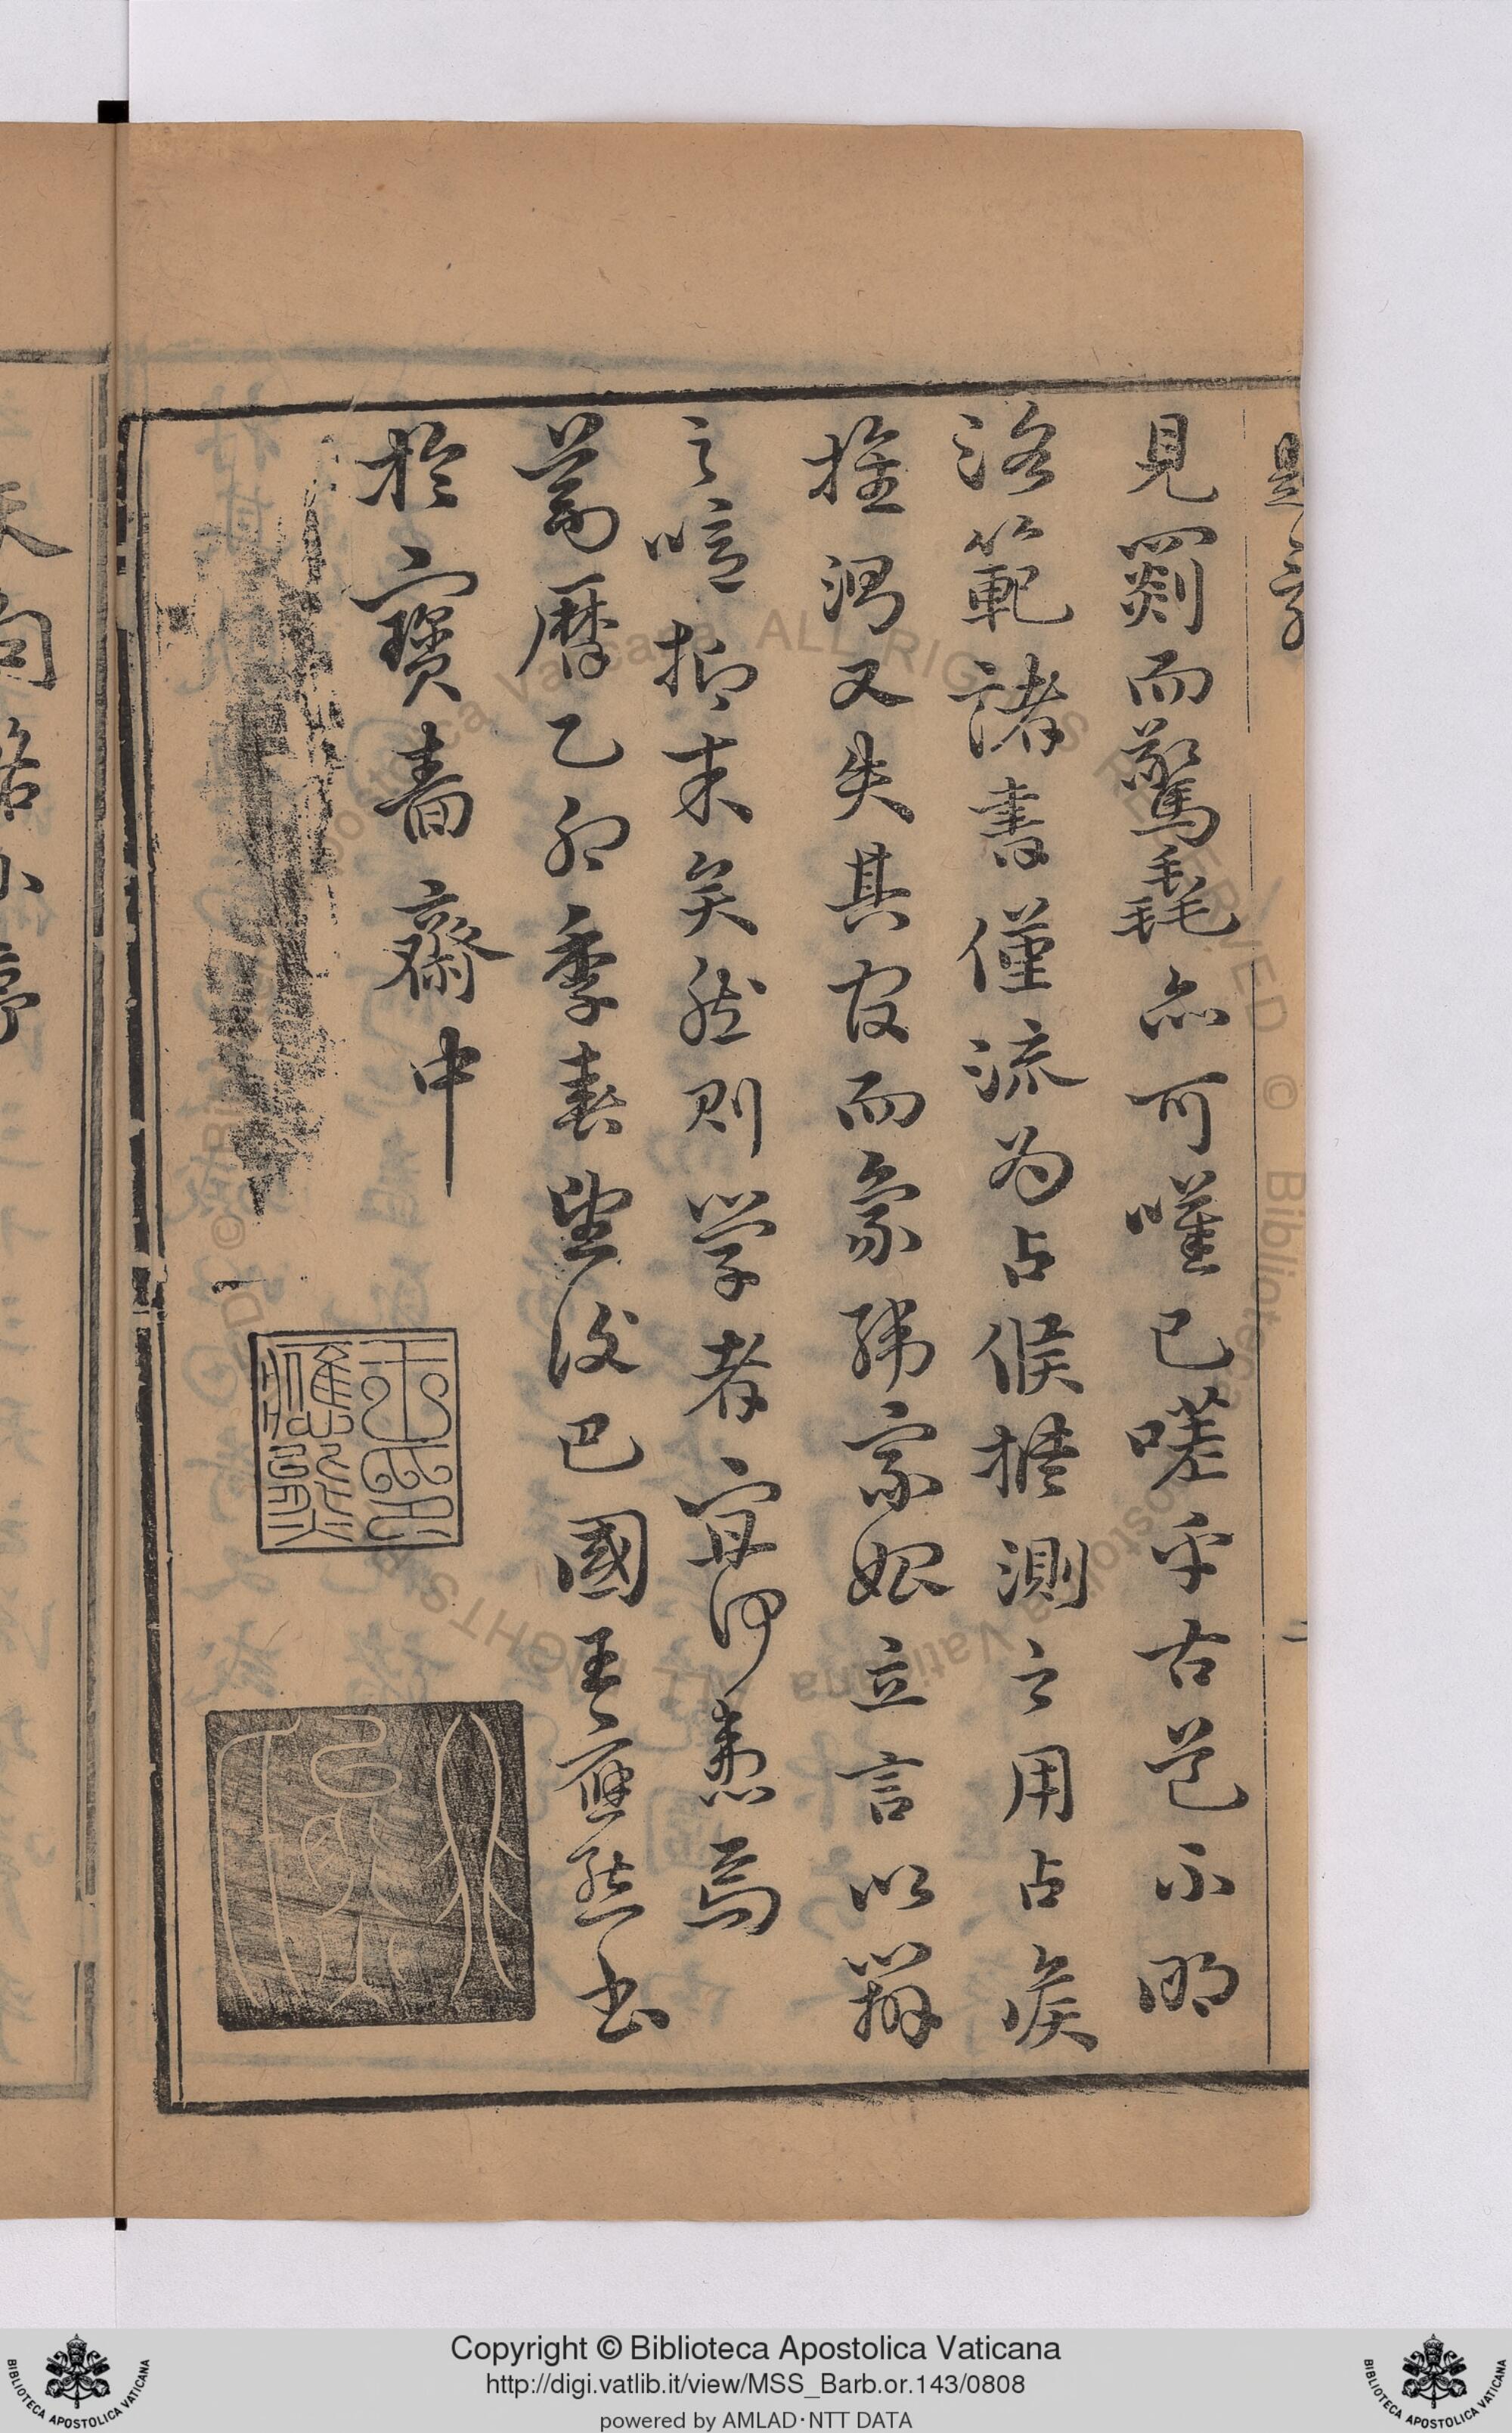 見罽而驚毳亦可嘆已嗟乎古道不明
洛範諸書僅流為占候推測之用占候
又失其官而象緯家始立言以辯
之喧抑末矣然則學者宜何焉
萬曆乙卯季春望後巴國王應熊書
於寶書齋中
天問略小序
Copyright © Biblioteca Apostolica Vaticana
http://digi.vatlib.it/view/MSS_Barb.or.143/0808
powered by AMLAD·NTT DATA